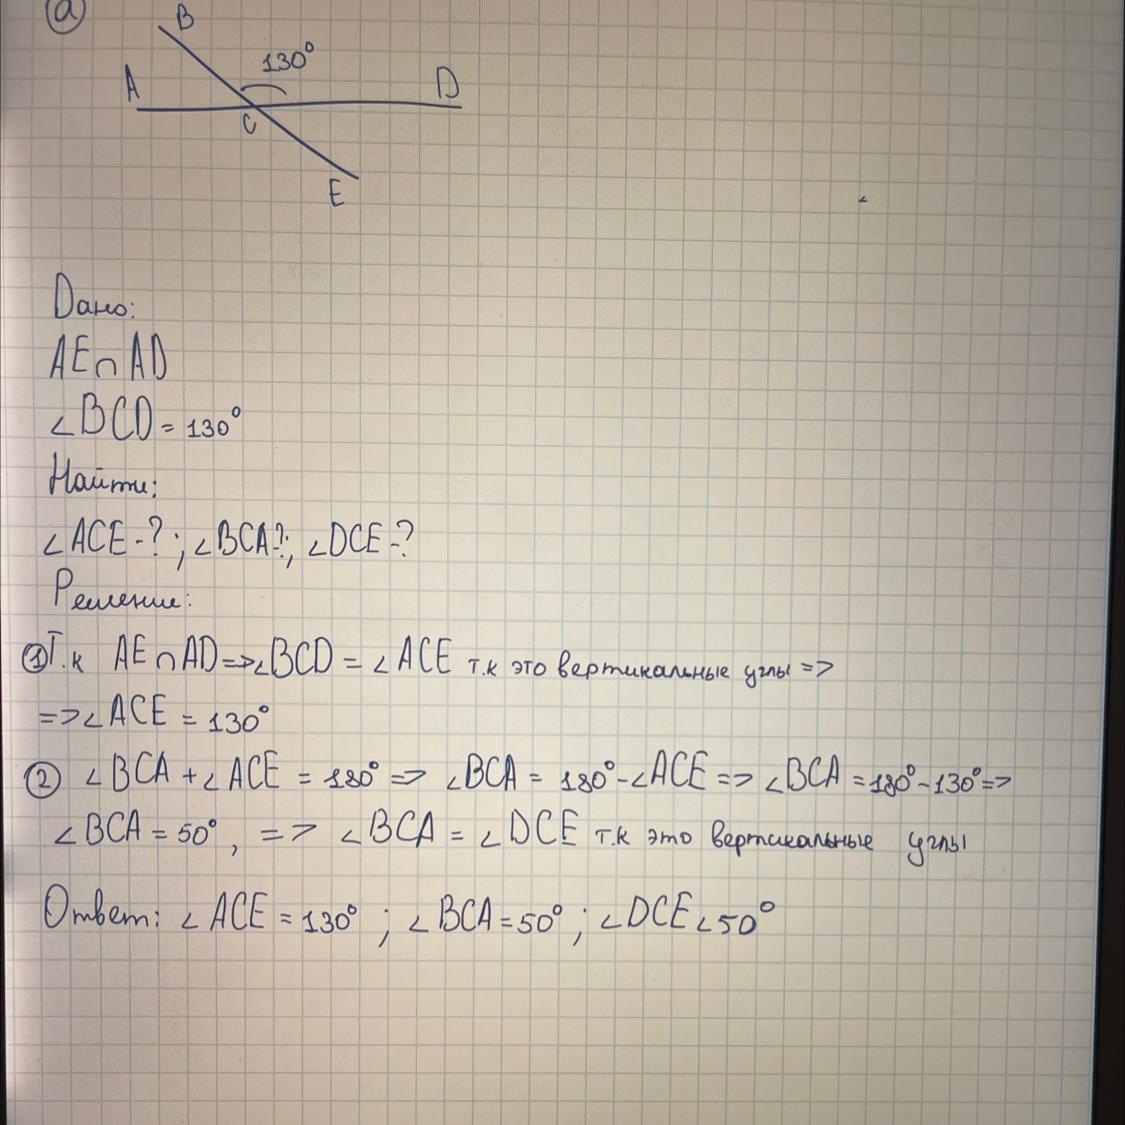 а
B
130°
A
D
C
E
Дано:
AE∩AD
∠BCD = 130°
Найти:
∠ACE-?; ∠BCA?; ∠DCE-?
Решение:
① Т.к AE∩AD=>∠BCD = ∠ACE т.к это вертикальные углы =>
=>∠ACE = 130°
② ∠BCA + ∠ACE = 180° => ∠BCA = 180°-∠ACE => ∠BCA = 180°-130° =>
∠BCA = 50°, => ∠BCA = ∠DCE т.к это вертикальные углы
Ответ: ∠ACE = 130°; ∠BCA = 50°; ∠DCE ∠50°